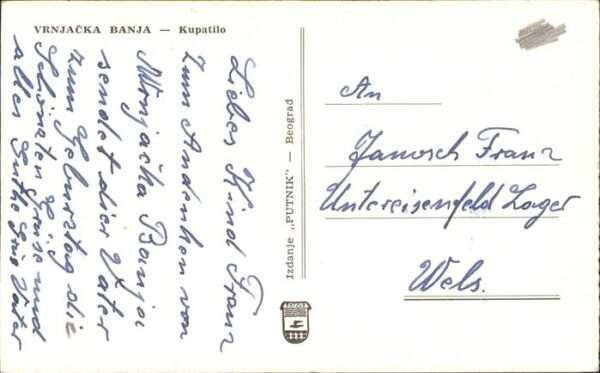 VRNJAČKA BANJA — Kupatilo
Liebes Kind Franz
Zum Andenken von
Wrnjačka Banja
sendet dier Vater
zum Geburztag die
Schönsten Grüse und
alles Guthe Dein Vater
Izdanje „PUTNIK" — Beograd
An
Janosch Franz
Untereisenfeld Lager
Wels.